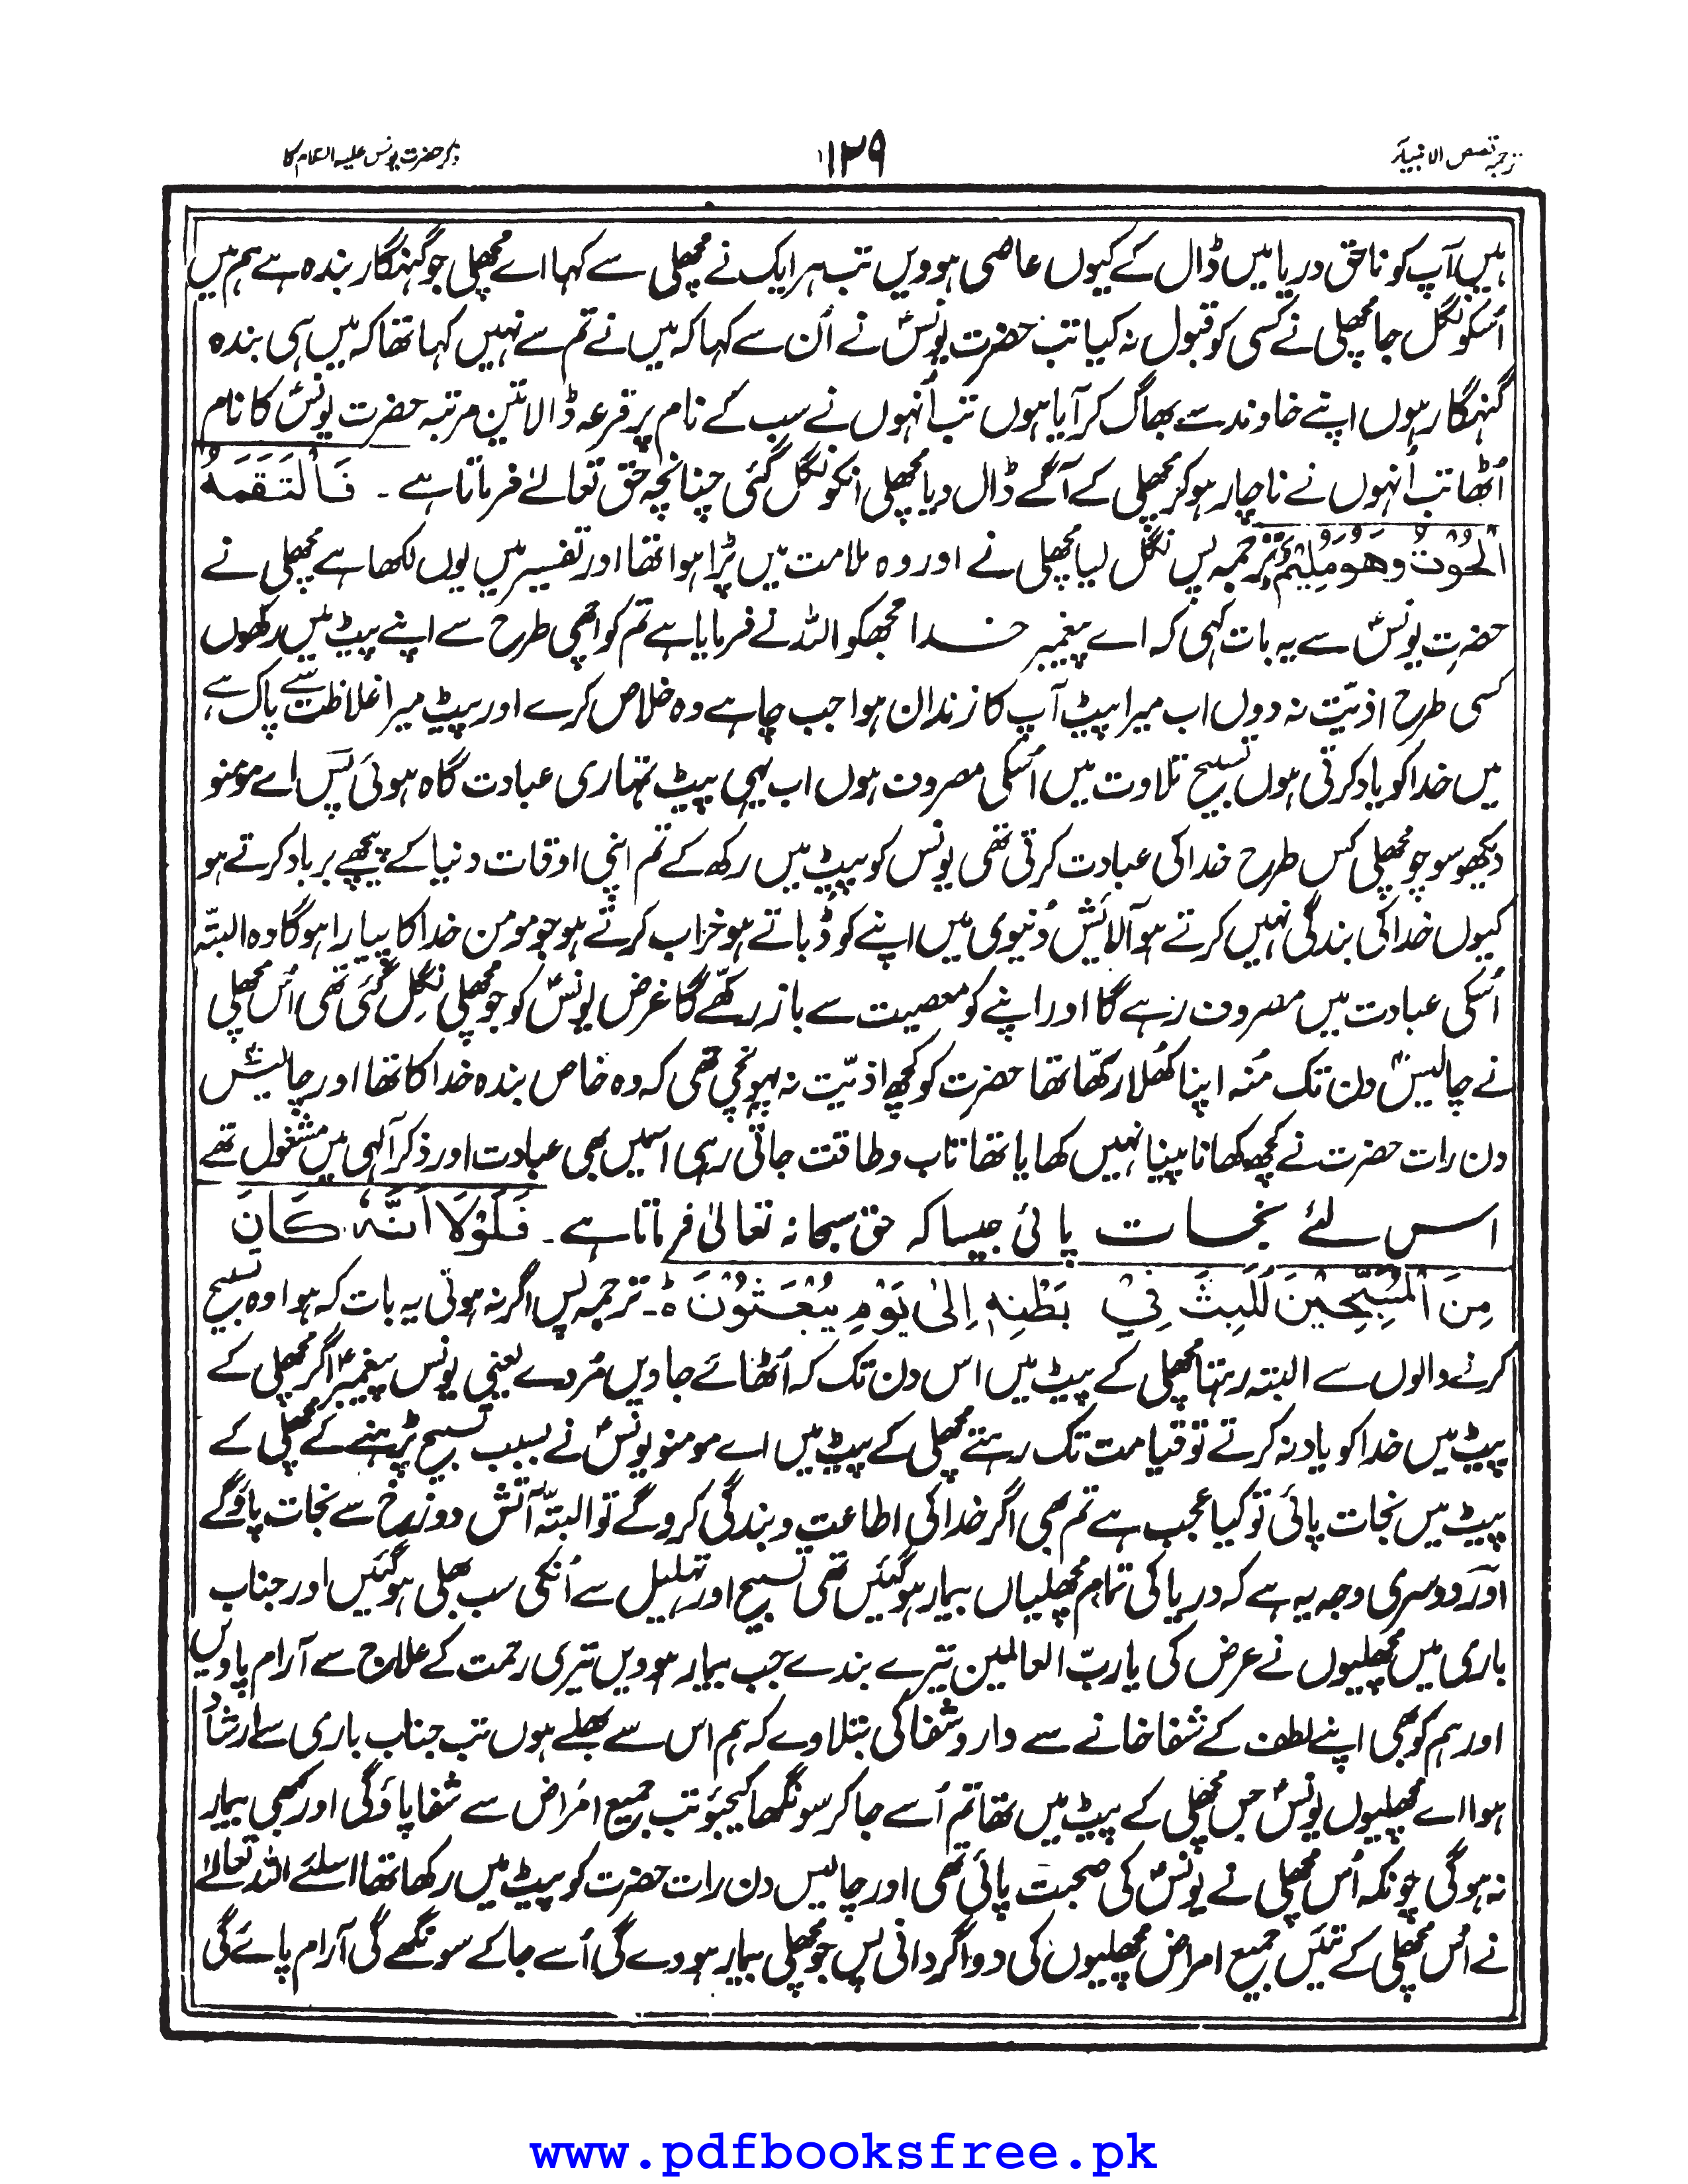 ترجمہ قصص الانبیاء
۱۲۹
ذکر حضرت یونس علیہ السلام کا
ہیں آپ کو ناحق دریا میں ڈال کے کیوں عاصی ہوویں تب ہر ایک نے مچھلی سے کہا اے مچھلی جو گنہگار بندہ ہے ہم میں
اُسکو نگل جا مچھلی نے کسی کو قبول نہ کیا تب حضرت یونسؑ نے اُن سے کہا کہ میں نے تم سے نہیں کہا تھا کہ میں ہی بندہ
گنہگار ہوں اپنے خاوند سے بھاگ کر آیا ہوں تب اُنہوں نے سب کے نام پر قرعہ ڈالا تین مرتبہ حضرت یونسؑ کا نام
اُٹھا تب اُنہوں نے ناچار ہو کر مچھلی کے آگے ڈال دیا مچھلی انکو نگل گئی چنانچہ حق تعالےٰ فرماتا ہے ۔ فَالْتَقَمَهُ
الْحُوْتُ وَهُوَ مُلِيْمٌ ترجمہ پس نگل لیا مچھلی نے اور وہ ملامت میں پڑا ہوا تھا اور تفسیر میں یوں لکھا ہے مچھلی نے
حضرت یونسؑ سے یہ بات کہی کہ اے پیغمبر خدا مجھکو اللہ نے فرمایا ہے تم کو اچھی طرح سے اپنے پیٹ میں رکھوں
کسی طرح اذیّت نہ دوں اب میرا پیٹ آپ کا زندان ہوا جب چاہے وہ خلاص کرے اور پیٹ میرا غلاظت سے پاک ہے
میں خدا کو یاد کرتی ہوں تسبیح تلاوت میں اُسکی مصروف ہوں اب یہی پیٹ تمہاری عبادت گاہ ہوئی پس اے مومنو
دیکھو سوچو مچھلی کس طرح خدا کی عبادت کرتی تھی یونس کو پیٹ میں رکھ کے تم اپنی اوقات دنیا کے پیچھے برباد کرتے ہو
کیوں خدا کی بندگی نہیں کرتے ہو آلائش دُنیوی میں اپنے کو ڈباتے ہو خراب کرتے ہو جو مومن خدا کا پیارا ہوگا وہ البتّہ
اُسکی عبادت میں مصروف رہے گا اور اپنے کو معصیت سے باز رکھّے گا غرض یونسؑ کو جو مچھلی نگل گئی تھی اُس مچھلی
نے چالیس دن تک مُنہ اپنا کھُلا رکھّا تھا حضرت کو کچھ اذیّت نہ پہونچی تھی کہ وہ خاص بندہ خدا کا تھا اور چالیس
دن رات حضرت نے کچھ کھانا پینا نہیں کھایا تھا تاب وطاقت جاتی رہی اسمیں بھی عبادت اور ذکر آلہی میں مشغول تھے
اس لئے نجات پائی جیسا کہ حق سبحانہ تعالیٰ فرماتا ہے ۔ فَلَوْلَا اَنَّهٗ كَانَ
مِنَ الْمُسَبِّحِيْنَ لَلَبِثَ فِيْ بَطْنِهٖ اِلٰى يَوْمِ يُبْعَثُوْنَ ہ۔ ترجمہ پس اگر نہ ہوتی یہ بات کہ ہوا وہ تسبیح
کرنے والوں سے البتہ رہتا مچھلی کے پیٹ میں اس دن تک کہ اُٹھائے جاویں مُردے یعنی یونس پیغمبرؑ اگر مچھلی کے
پیٹ میں خدا کو یاد نہ کرتے تو قیامت تک رہتے مچھلی کے پیٹ میں اے مومنو یونسؑ نے بسبب تسبیح پڑہنے کے مچھلی کے
پیٹ میں نجات پائی تو کیا عجب ہے تم بھی اگر خدا کی اطاعت و بندگی کروگے تو البتّہ آتش دوزخ سے نجات پاؤگے
اور دوسری وجہ یہ ہے کہ دریا کی تمام مچھلیاں بیمار ہوگئیں تھی تسبیح اور تہلیل سے اُنکی سب بھلی ہوگئیں اور جناب
باری میں مچھلیوں نے عرض کی یا ربّ العالمین تیرے بندے جب بیمار ہوویں تیری رحمت کے علاج سے آرام پاویں
اور ہم کو بھی اپنے لطف کے شفاخانے سے دارو شفا کی بتلاوے کہ ہم اس سے بھلے ہوں تب جناب باری سے ارشاد
ہوا اے مچھلیوں یونسؑ جس مچھلی کے پیٹ میں تھا تم اُسے جاکر سونگھا کیجیؤ تب جمیع امراض سے شفا پاؤگی اور کبھی بیمار
نہ ہوگی چونکہ اُس مچھلی نے یونسؑ کی صحبت پائی تھی اور چالیس دن رات حضرت کو پیٹ میں رکھا تھا اسلئے اللہ تعالےٰ
نے اُس مچھلی کے تئیں جمیع امراض مچھلیوں کی دوا گردانی پس جو مچھلی بیمار ہووے گی اُسے جاکے سونگھے گی آرام پائے گی
www.pdfbooksfree.pk